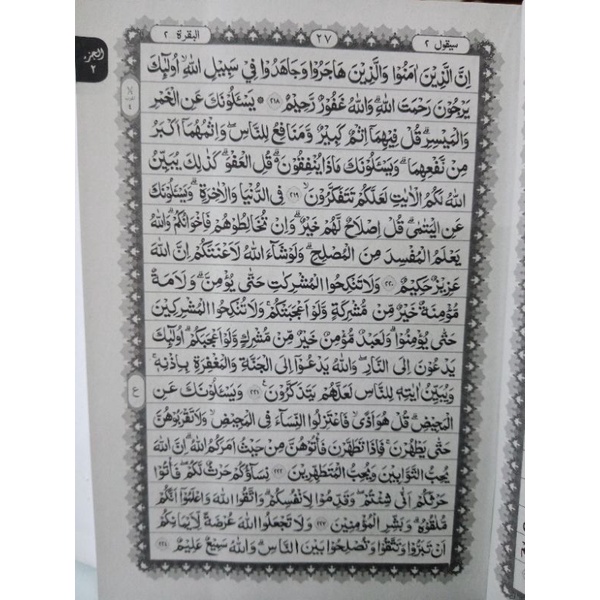 سيقول ٢
٢٧
البقرة ٢
الجزء
٢
اِنَّ الَّذِيْنَ اٰمَنُوْا وَالَّذِيْنَ هَاجَرُوْا وَجَاهَدُوْا فِيْ سَبِيْلِ اللّٰهِ اُولٰٓئِكَ
يَرْجُوْنَ رَحْمَتَ اللّٰهِ ۗ وَاللّٰهُ غَفُوْرٌ رَّحِيْمٌ ٢١٨ ۞ يَسْـَٔلُوْنَكَ عَنِ الْخَمْرِ
وَالْمَيْسِرِ ۗ قُلْ فِيْهِمَآ اِثْمٌ كَبِيْرٌ وَّمَنَافِعُ لِلنَّاسِ ۖ وَاِثْمُهُمَآ اَكْبَرُ
مِنْ نَّفْعِهِمَا ۗ وَيَسْـَٔلُوْنَكَ مَاذَا يُنْفِقُوْنَ ۗ قُلِ الْعَفْوَ ۗ كَذٰلِكَ يُبَيِّنُ
اللّٰهُ لَكُمُ الْاٰيٰتِ لَعَلَّكُمْ تَتَفَكَّرُوْنَ ۙ ٢١٩ فِى الدُّنْيَا وَالْاٰخِرَةِ ۗ وَيَسْـَٔلُوْنَكَ
عَنِ الْيَتٰمٰى ۗ قُلْ اِصْلَاحٌ لَّهُمْ خَيْرٌ ۗ وَاِنْ تُخَالِطُوْهُمْ فَاِخْوَانُكُمْ ۗ وَاللّٰهُ
يَعْلَمُ الْمُفْسِدَ مِنَ الْمُصْلِحِ ۗ وَلَوْ شَآءَ اللّٰهُ لَاَعْنَتَكُمْ اِنَّ اللّٰهَ
عَزِيْزٌ حَكِيْمٌ ٢٢٠ وَلَا تَنْكِحُوا الْمُشْرِكٰتِ حَتّٰى يُؤْمِنَّ ۗ وَلَاَمَةٌ
مُّؤْمِنَةٌ خَيْرٌ مِّنْ مُّشْرِكَةٍ وَّلَوْ اَعْجَبَتْكُمْ ۚ وَلَا تُنْكِحُوا الْمُشْرِكِيْنَ
حَتّٰى يُؤْمِنُوْا ۗ وَلَعَبْدٌ مُّؤْمِنٌ خَيْرٌ مِّنْ مُّشْرِكٍ وَّلَوْ اَعْجَبَكُمْ ۗ اُولٰٓئِكَ
يَدْعُوْنَ اِلَى النَّارِ ۖ وَاللّٰهُ يَدْعُوْٓا اِلَى الْجَنَّةِ وَالْمَغْفِرَةِ بِاِذْنِهٖ ۚ
وَيُبَيِّنُ اٰيٰتِهٖ لِلنَّاسِ لَعَلَّهُمْ يَتَذَكَّرُوْنَ ۚ ٢٢١ وَيَسْـَٔلُوْنَكَ عَنِ
ع
الْمَحِيْضِ ۗ قُلْ هُوَ اَذًىۙ فَاعْتَزِلُوا النِّسَآءَ فِى الْمَحِيْضِ ۙ وَلَا تَقْرَبُوْهُنَّ
حَتّٰى يَطْهُرْنَ ۚ فَاِذَا تَطَهَّرْنَ فَأْتُوْهُنَّ مِنْ حَيْثُ اَمَرَكُمُ اللّٰهُ ۗ اِنَّ اللّٰهَ
يُحِبُّ التَّوَّابِيْنَ وَيُحِبُّ الْمُتَطَهِّرِيْنَ ٢٢٢ نِسَآؤُكُمْ حَرْثٌ لَّكُمْ ۖ فَأْتُوْا
حَرْثَكُمْ اَنّٰى شِئْتُمْ ۖ وَقَدِّمُوْا لِاَنْفُسِكُمْ ۗ وَاتَّقُوا اللّٰهَ وَاعْلَمُوْٓا اَنَّكُمْ
مُّلٰقُوْهُ ۗ وَبَشِّرِ الْمُؤْمِنِيْنَ ٢٢٣ وَلَا تَجْعَلُوا اللّٰهَ عُرْضَةً لِّاَيْمَانِكُمْ
اَنْ تَبَرُّوْا وَتَتَّقُوْا وَتُصْلِحُوْا بَيْنَ النَّاسِ ۗ وَاللّٰهُ سَمِيْعٌ عَلِيْمٌ ٢٢٤